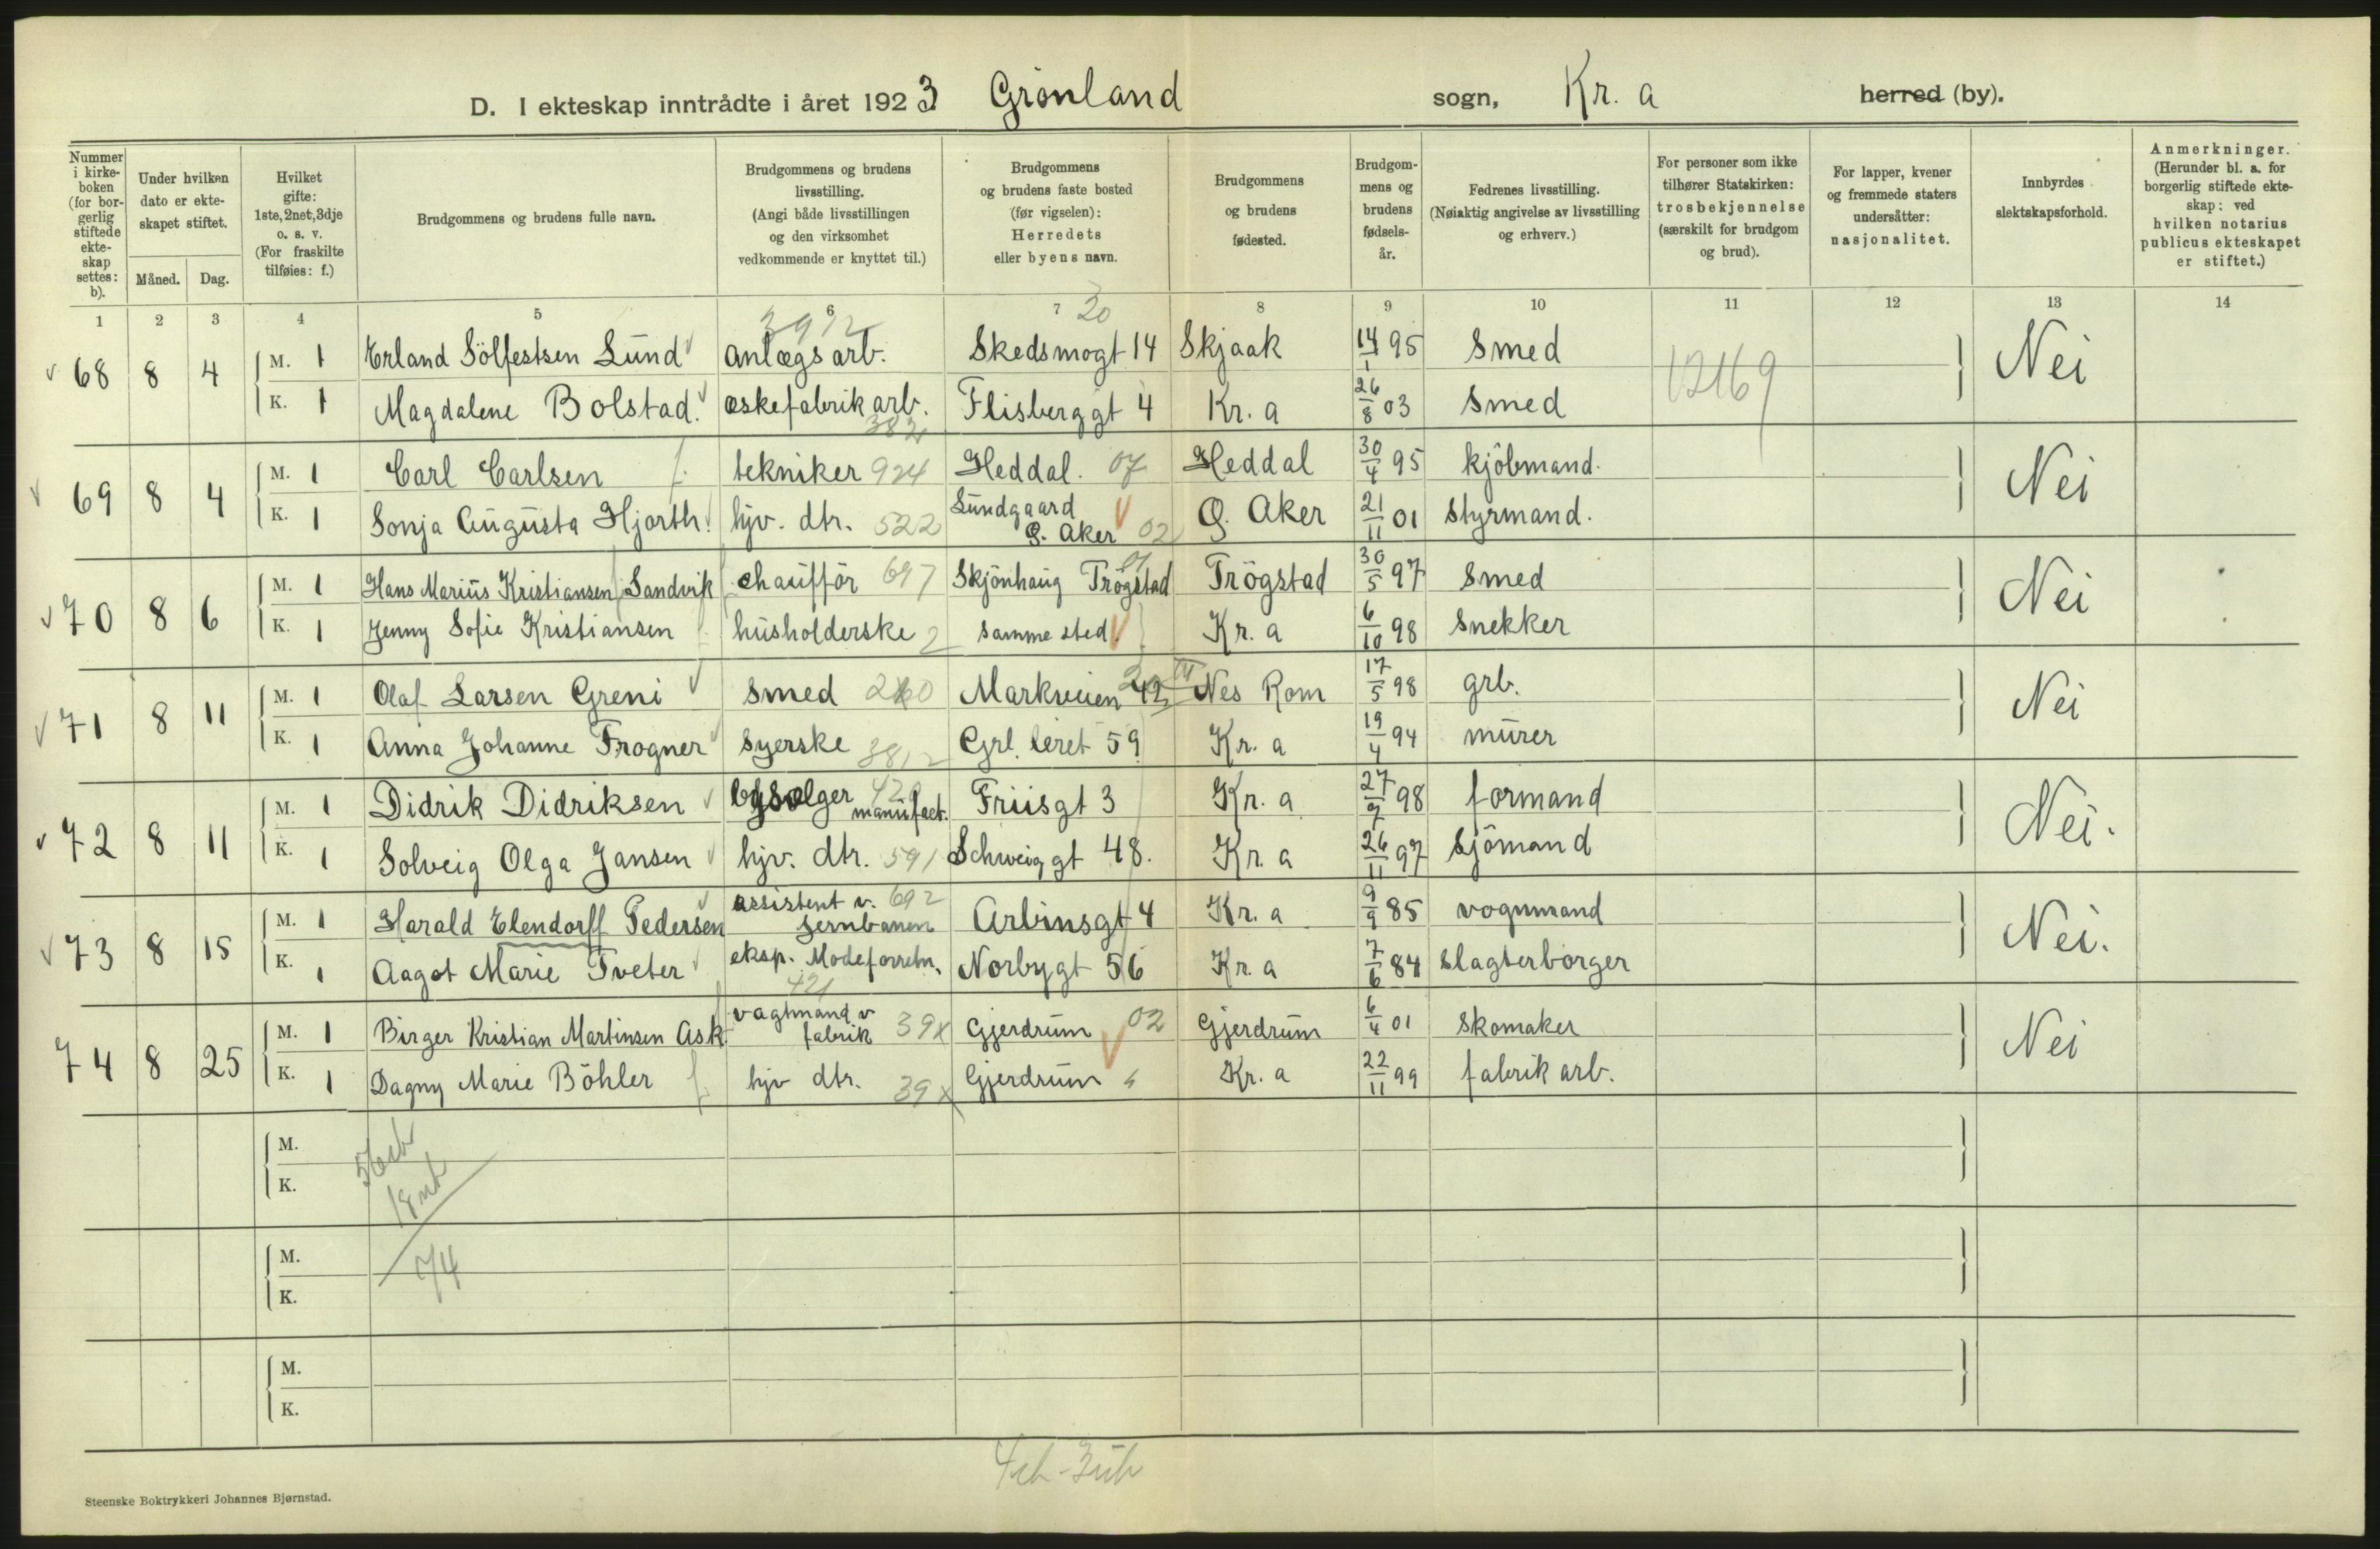 D. I ekteskap inntrådte i året 1923 Grönland sogn, Kr. a herred (by).
Nummer i kirkeboken (for borgerlig stiftede ekteskap settes: b).
Under hvilken dato er ekteskapet stiftet.
Måned. Dag.
Hvilket gifte: 1ste, 2net, 3dje o. s. v. (For fraskilte tilføies: f.)
Brudgommens og brudens fulle navn.
Brudgommens og brudens livsstilling. (Angi både livsstillingen og den virksomhet vedkommende er knyttet til.)
Brudgommens og brudens faste bosted (før vigselen): Herredets eller byens navn.
Brudgommens og brudens fødested.
Brudgommens og brudens fødselsår.
Fedrenes livsstilling. (Nøiaktig angivelse av livsstilling og erhverv.)
For personer som ikke tilhører Statskirken: trosbekjennelse (særskilt for brudgom og brud).
For lapper, kvener og fremmede staters undersåtter: nasjonalitet.
Innbyrdes slektskapsforhold.
Anmerkninger. (Herunder bl. a. for borgerlig stiftede ekteskap: ved hvilken notarius publicus ekteskapet er stiftet.)
1 2 3 4 5 6 7 8 9 10 11 12 13 14
3912 20
68 8 4 M. 1 Erland Sölfestsen Lund anlægsarb. Skedsmogt 14 Skjaak 14/1 95 Smed Nei
K. 1 Magdalene Bolstad. æskefabrikarb. Flisberggt 4 Kr. a 26/8 03 Smed 12169
382
69 8 4 M. 1 Carl Carlsen tekniker 924 Heddal. 07 Heddal 30/4 95 kjöbmand. Nei
K. 1 Sonja Augusta Hjorth. hjv. dtr. 522 Lundgaard Ö. Aker 02 Ö. Aker 21/11 01 Styrmand.
70 8 6 M. 1 Hans Marius Kristiansen Sandvik chaufför 697 Skjönhaug Trögstad 01 Trögstad 30/5 97 Smed Nei
K. 1 Jenny Sofie Kristiansen husholderske 2 samme sted Kr. a 6/10 98 Snekker
71 8 11 M. 1 Olaf Larsen Greni Smed Markveien 42 Nes Rom 17/5 98 grb. Nei
K. 1 Anna Johanne Frogner Syerske 3812 Grl. leret 59 Kr. a 19/4 94 murer
72 8 11 M. 1 Didrik Didriksen bysælger manufact. 420 Friisgt 3 Kr. a 27/9 98 formand Nei.
K. 1 Solveig Olga Jansen hjv. dtr. 591 Schweiggt 48. Kr. a 26/11 97 Sjömand
73 8 15 M. 1 Harald Elendorff Pedersen assistent v. jernbanen 692 Arbinsgt 4 Kr. a 9/9 85 vognmand Nei.
K. 1 Aagot Marie Tveter eksp. Modeforretn. Norbygt 56 Kr. a 7/6 84 Slagterborger
421
74 8 25 M. 1 Birger Kristian Martinsen Ask vagtmand v fabrik 39x Gjerdrum 02 Gjerdrum 6/4 01 Skomaker Nei
K. 1 Dagny Marie Böhler hjv dtr. 39x Gjerdrum Kr. a 22/11 99 fabrik arb.
M.
K.
M. 74
K.
M.
K.
Steenske Boktrykkeri Johannes Bjørnstad.